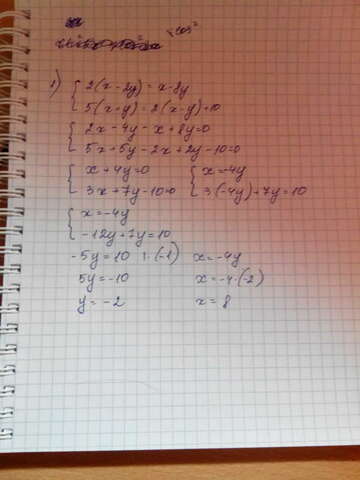 cos²
1) { 2(x-2y) = x-8y
5(x-y) = 2(x-y)+10
{ 2x-4y-x+8y=0
5x+5y-2x+2y-10=0
{ x+4y=0 { x=-4y
3x+7y-10=0 3·(-4y)+7y=10
{ x=-4y
-12y+7y=10
-5y=10 |·(-1) x=-4y
5y=-10 x=-4·(-2)
y=-2 x=8